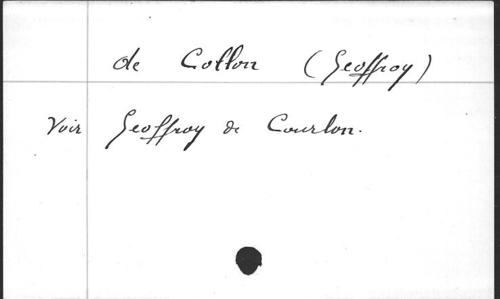 de Collon (Geoffroy)
Voir Geoffroy de Courlon.